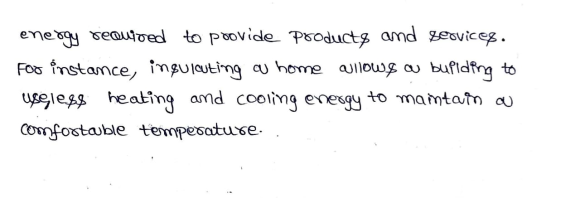 energy required to provide products and services.
For instance, insulating a home allows a building to
useless heating and cooling energy to maintain a
comfortable temperature.